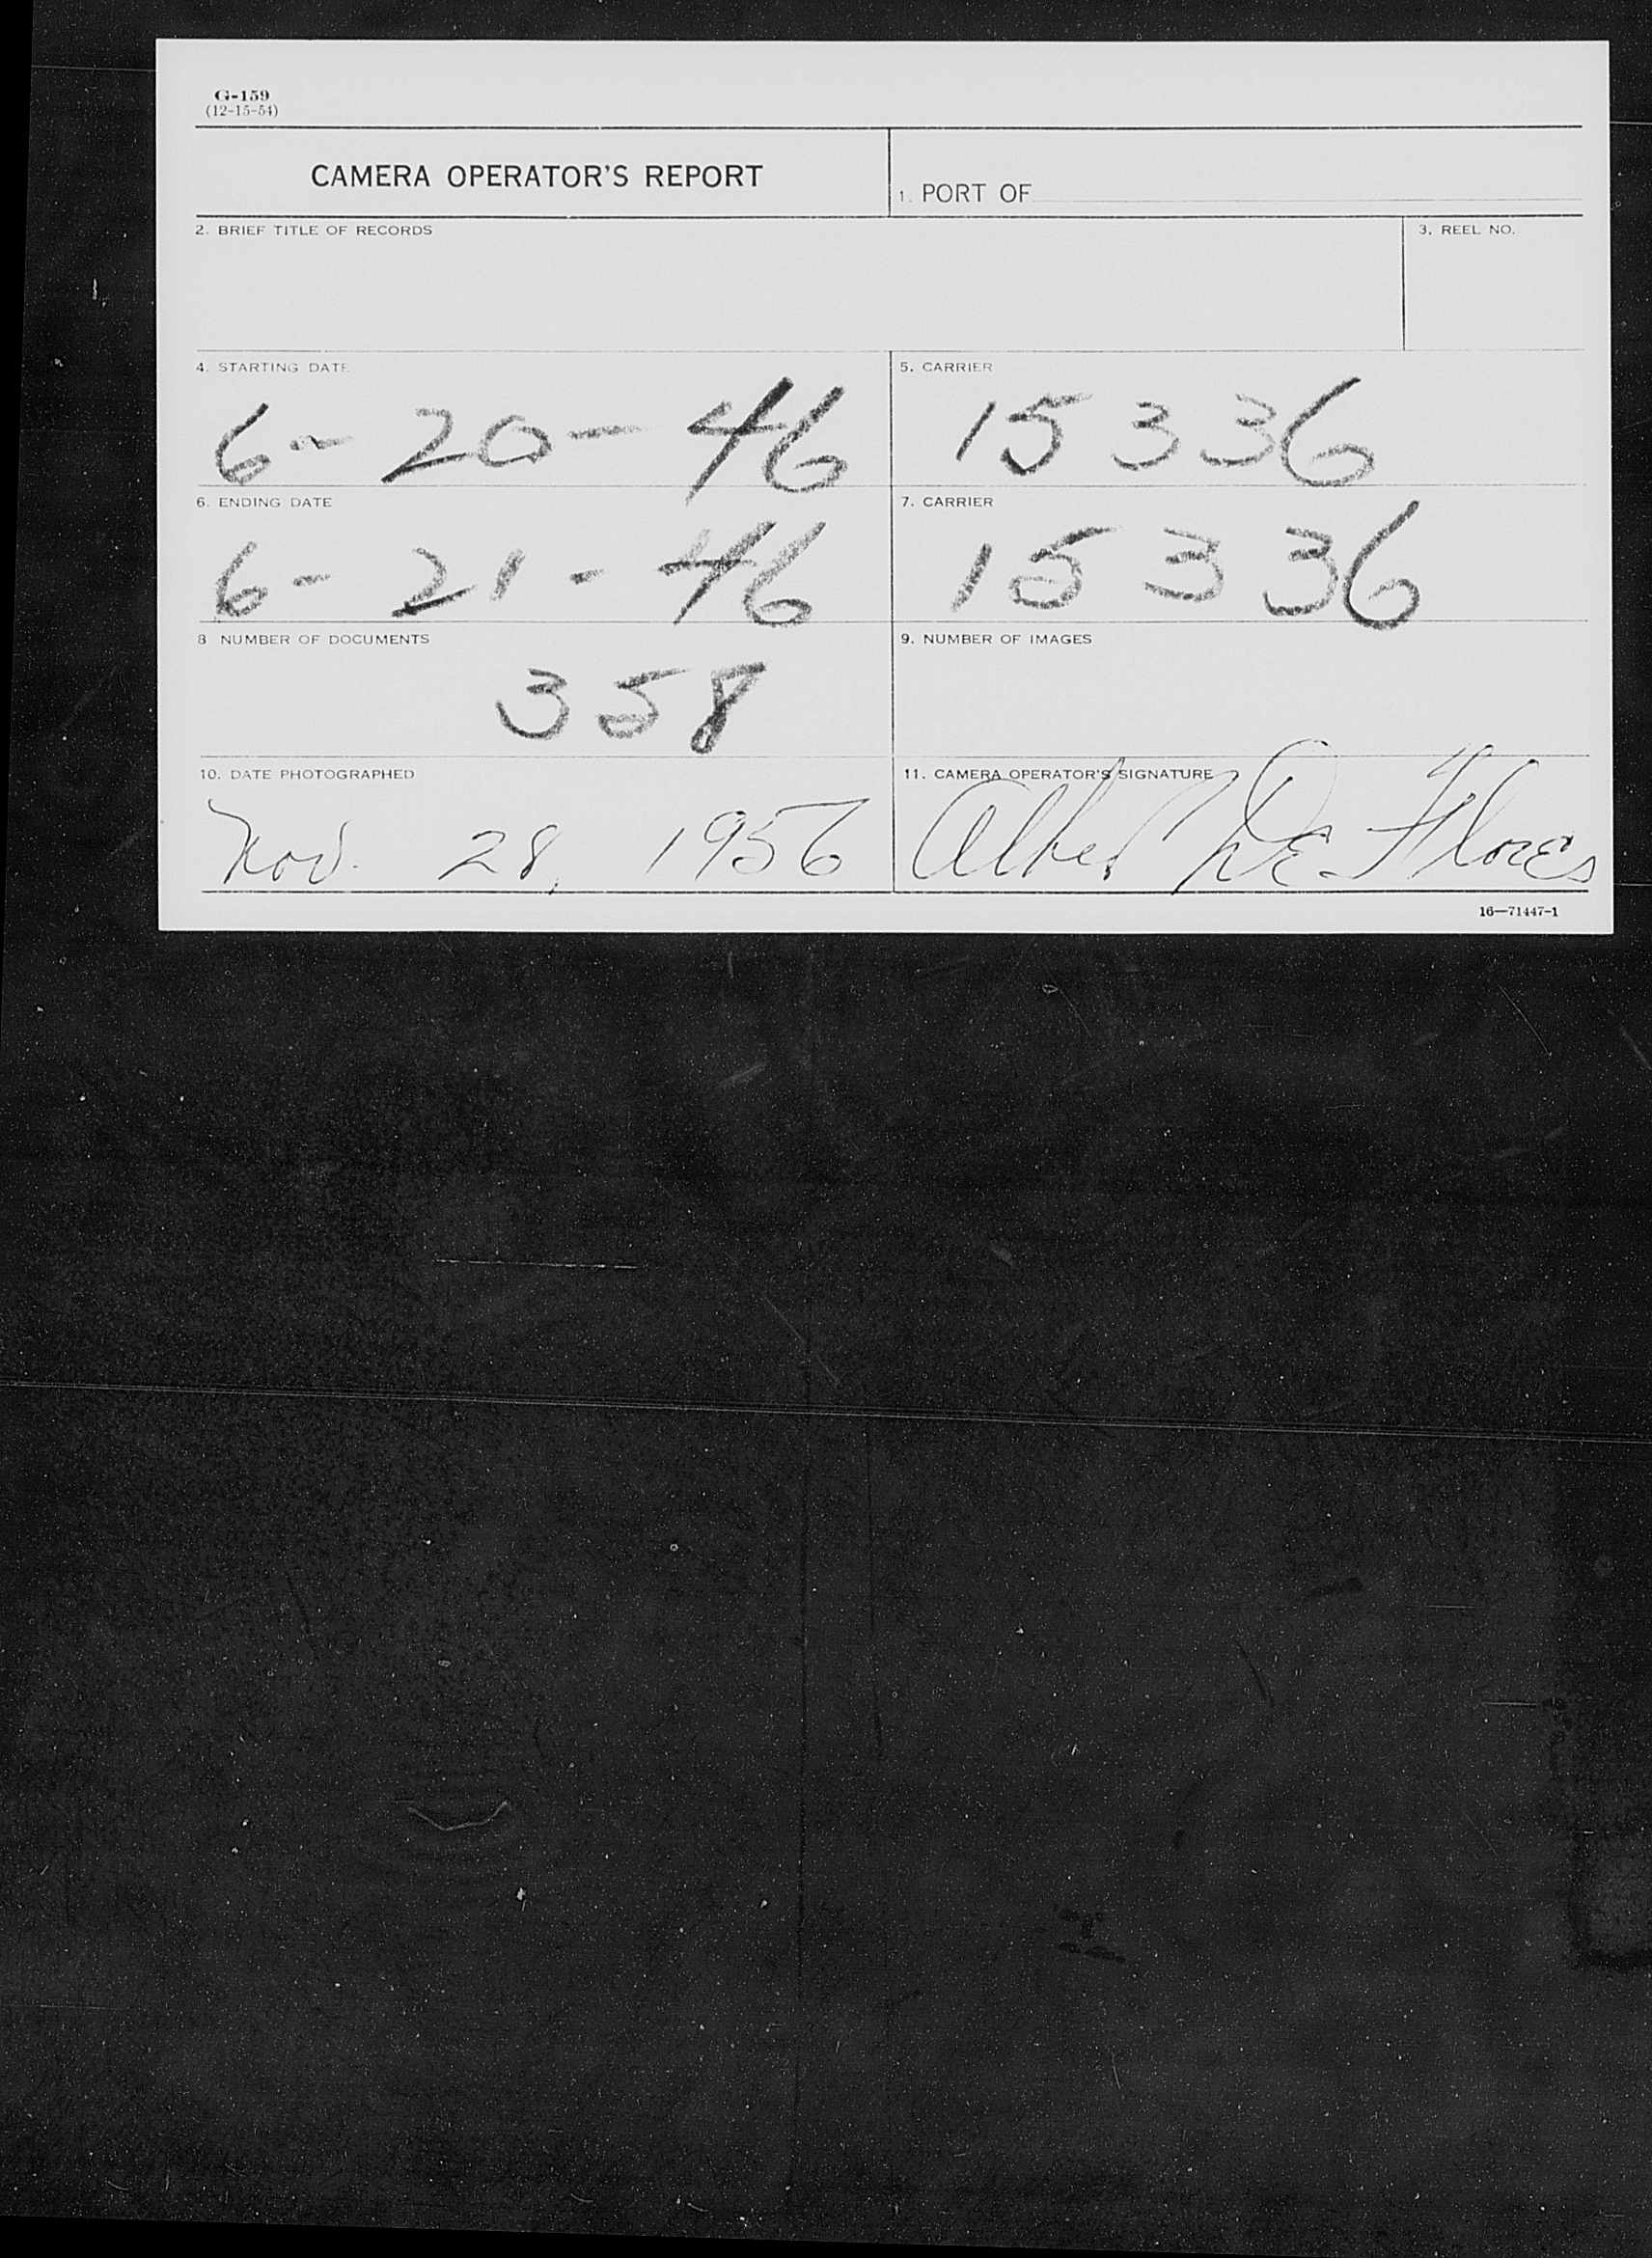 G-159
(12-15-54)
CAMERA OPERATOR'S REPORT
1. PORT OF
2. BRIEF TITLE OF RECORDS
3. REEL NO.
4. STARTING DATE
5. CARRIER
6- 20- 46
15336
6. ENDING DATE
7. CARRIER
6- 21- 46
15336
8 NUMBER OF DOCUMENTS
9. NUMBER OF IMAGES
358
10. DATE PHOTOGRAPHED
11. CAMERA OPERATOR'S SIGNATURE
Nov. 28, 1956
Albert De Flores
16—71447-1